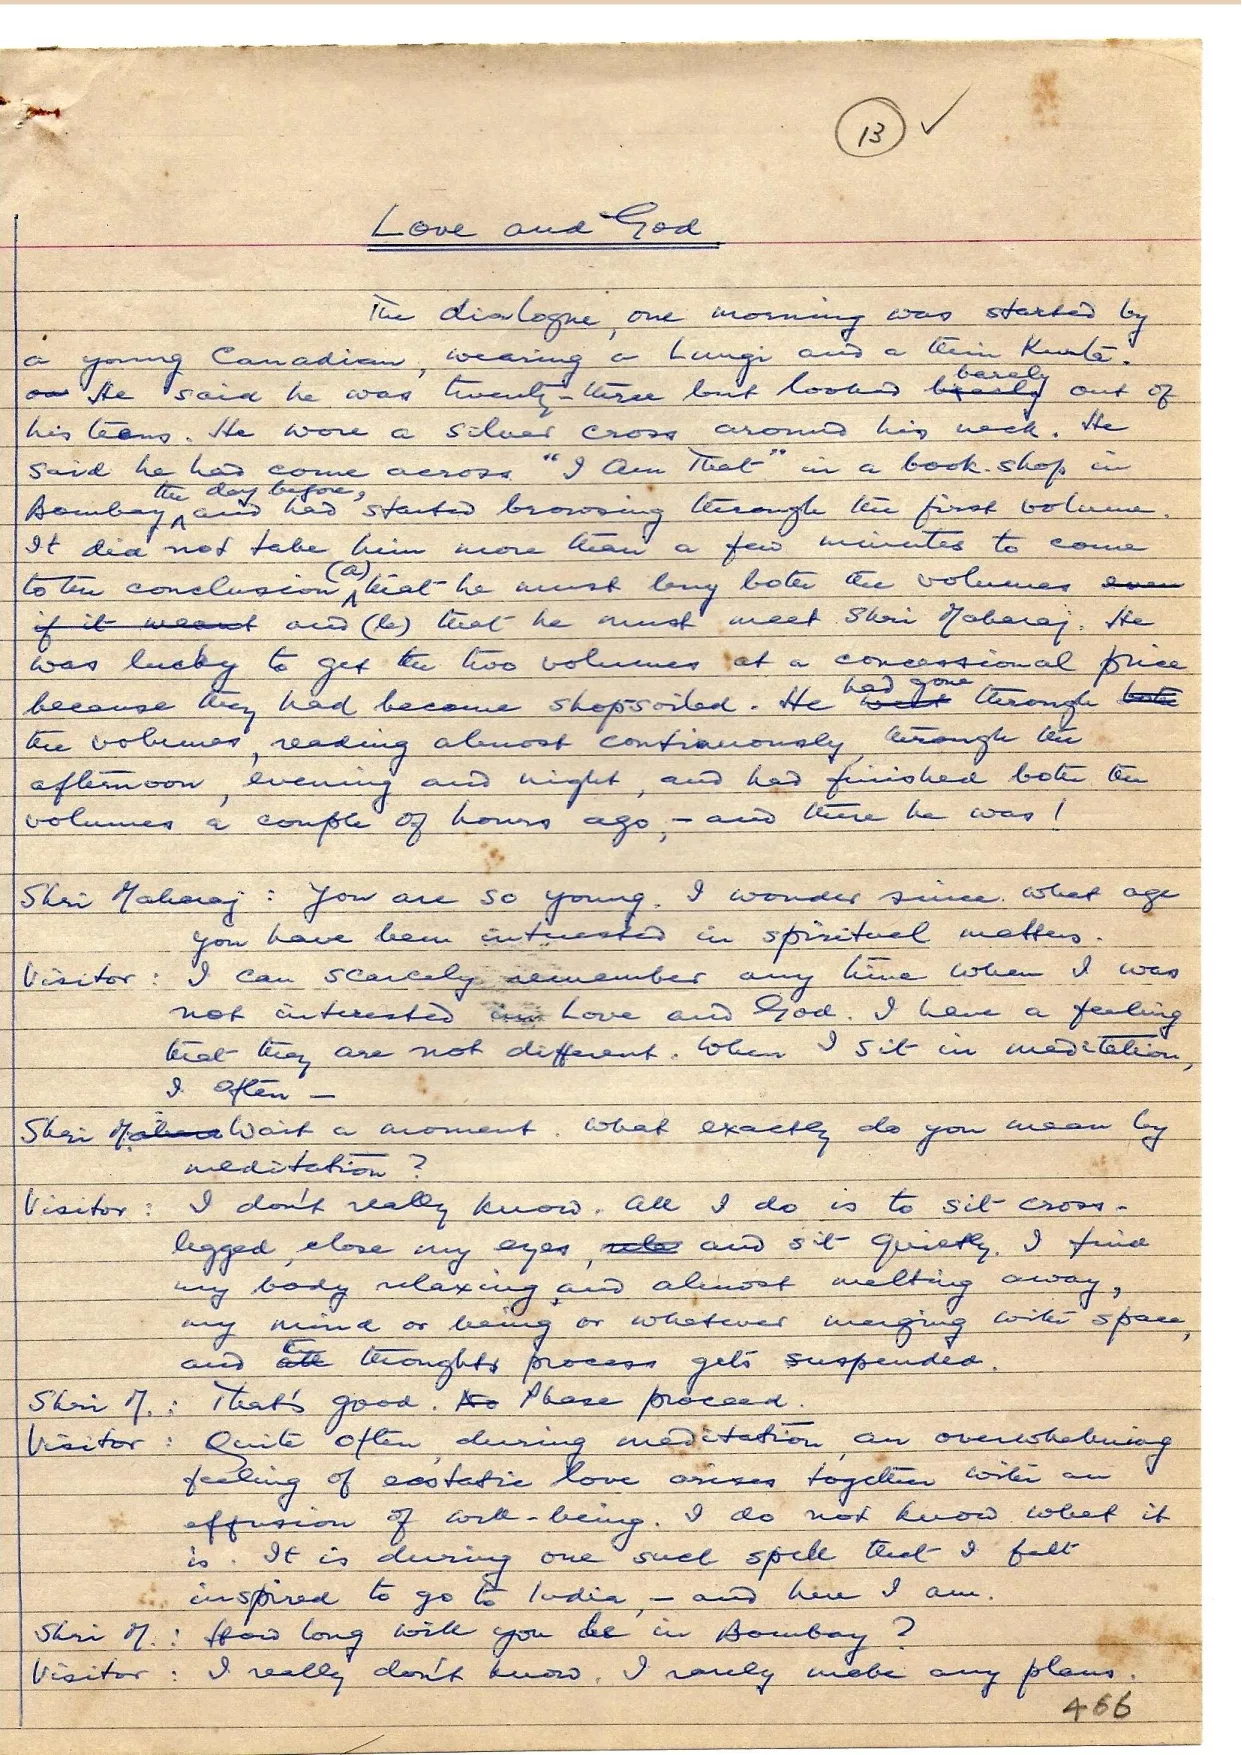 13 ✓
Love and God
The dialogue, one morning was started by
a young Canadian, wearing a Lungi and a thin Kurta.
He said he was twenty-three but looked barely out of
his teens. He wore a silver cross around his neck. He
said he had come across "I Am That" in a book-shop in
Bombay the day before, and had started browsing through the first volume.
It did not take him more than a few minutes to come
to the conclusion (a) that he must buy both the volumes even
if it meant and (b) that he must meet Shri Maharaj. He
was lucky to get the two volumes at a concessional price
because they had become shopsoiled. He had gone went through both
the volumes, reading almost continuously, through the
afternoon, evening and night, and had finished both the
volumes a couple of hours ago, - and there he was!
Shri Maharaj : You are so young. I wonder since what age
you have been interested in spiritual matters.
Visitor : I can scarcely remember any time when I was
not interested in Love and God. I have a feeling
that they are not different. When I sit in meditation,
I often —
Shri M. : Wait a moment. What exactly do you mean by
meditation?
Visitor : I don't really know. All I do is to sit cross-
legged, close my eyes, and sit quietly. I find
my body relaxing, and almost melting away,
my mind or being or whatever merging with space,
and the thought process gets suspended.
Shri M. : That's good. Please proceed.
Visitor : Quite often, during meditation, an overwhelming
feeling of ecstatic love arises together with an
effusion of well-being. I do not know what it
is. It is during one such spell that I felt
inspired to go to India, - and here I am.
Shri M. : How long will you be in Bombay?
Visitor : I really don't know. I rarely make any plans.
466